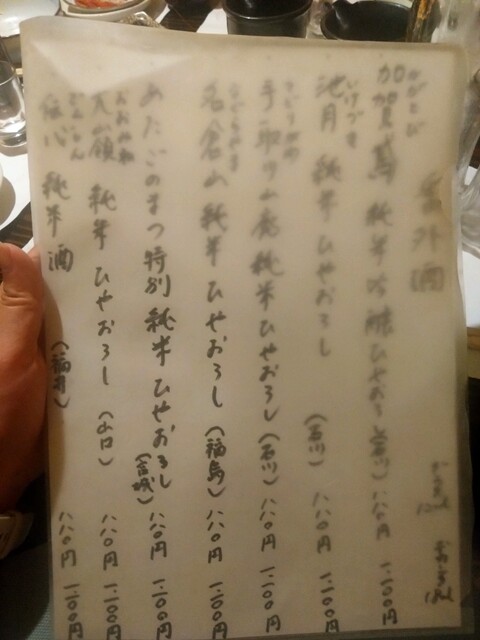 番外酒
かがとび
加賀鳶 純米吟醸ひやおろし(石川) 八八〇円 一二〇〇円
いけづき
池月 純米ひやおろし (石川) 八八〇円 一二〇〇円
てどりがわ
手取川 山廃純米ひやおろし (石川) 八八〇円 一二〇〇円
なぐらやま
名倉山 純米ひやおろし (福島) 八八〇円 一二〇〇円
あたごのまつ 特別純米ひやおろし (宮城) 八八〇円 一二〇〇円
おおみね
大嶺 純米ひやおろし (山口) 八八〇円 一二〇〇円
でんしん
伝心 純米酒 (福井) 八八〇円 一二〇〇円